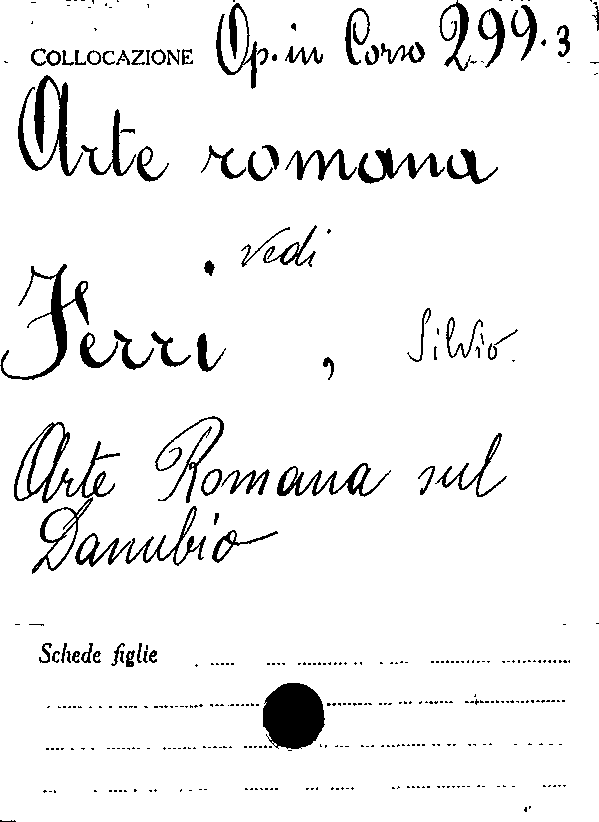 COLLOCAZIONE Op. in Corso 299.3
Arte romana
. vedi
Ferri , Silvio.
Arte Romana sul
Danubio
Schede figlie